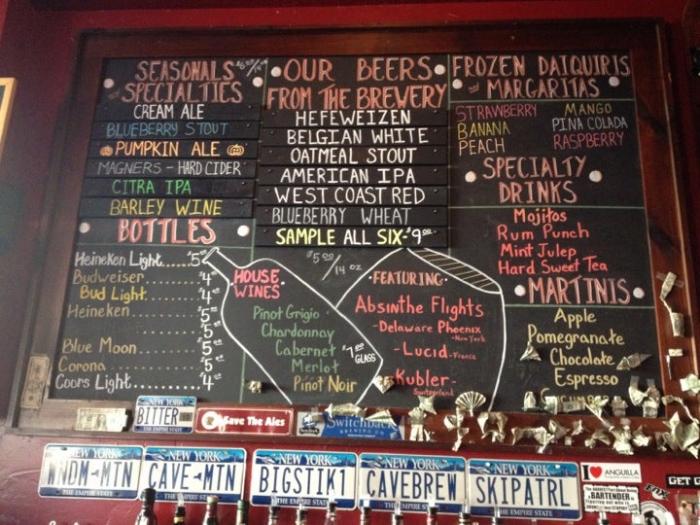 SEASONALS
AND SPECIALTIES
CREAM ALE
BLUEBERRY STOUT
PUMPKIN ALE
MAGNERS - HARD CIDER
CITRA IPA
BARLEY WINE
BOTTLES
Heineken Light.....$5
Budweiser.....$4
Bud Light.....$4
Heineken.....$5
.....$5
Blue Moon.....$5
Corona.....$5
Coors Light.....$4
OUR BEERS
FROM THE BREWERY
HEFEWEIZEN
BELGIAN WHITE
OATMEAL STOUT
AMERICAN IPA
WEST COAST RED
BLUEBERRY WHEAT
SAMPLE ALL SIX-$9.00
$5.00/14 OZ
HOUSE
WINES
Pinot Grigio
Chardonnay
Cabernet
Merlot
Pinot Noir
$7.00
GLASS
·FEATURING·
Absinthe Flights
-Delaware Phoenix
-New York
-Lucid-France
-Kubler-
Switzerland
FROZEN DAIQUIRIS
AND MARGARITAS
STRAWBERRY MANGO
BANANA PINA COLADA
PEACH RASPBERRY
SPECIALTY
DRINKS
Mojitos
Rum Punch
Mint Julep
Hard Sweet Tea
MARTINIS
Apple
Pomegranate
Chocolate
Espresso
NEW YORK
BITTER
THE EMPIRE STATE
Save The Ales
Switchback
BREWING CO.
NEW YORK
WNDM MTN
THE EMPIRE STATE
NEW YORK
CAVE MTN
THE EMPIRE STATE
NEW YORK
BIGSTIK1
THE EMPIRE STATE
NEW YORK
CAVEBREW
THE EMPIRE STATE
NEW YORK
SKIPATRL
THE EMPIRE STATE
I ANGUILLA
BARTENDER
GET